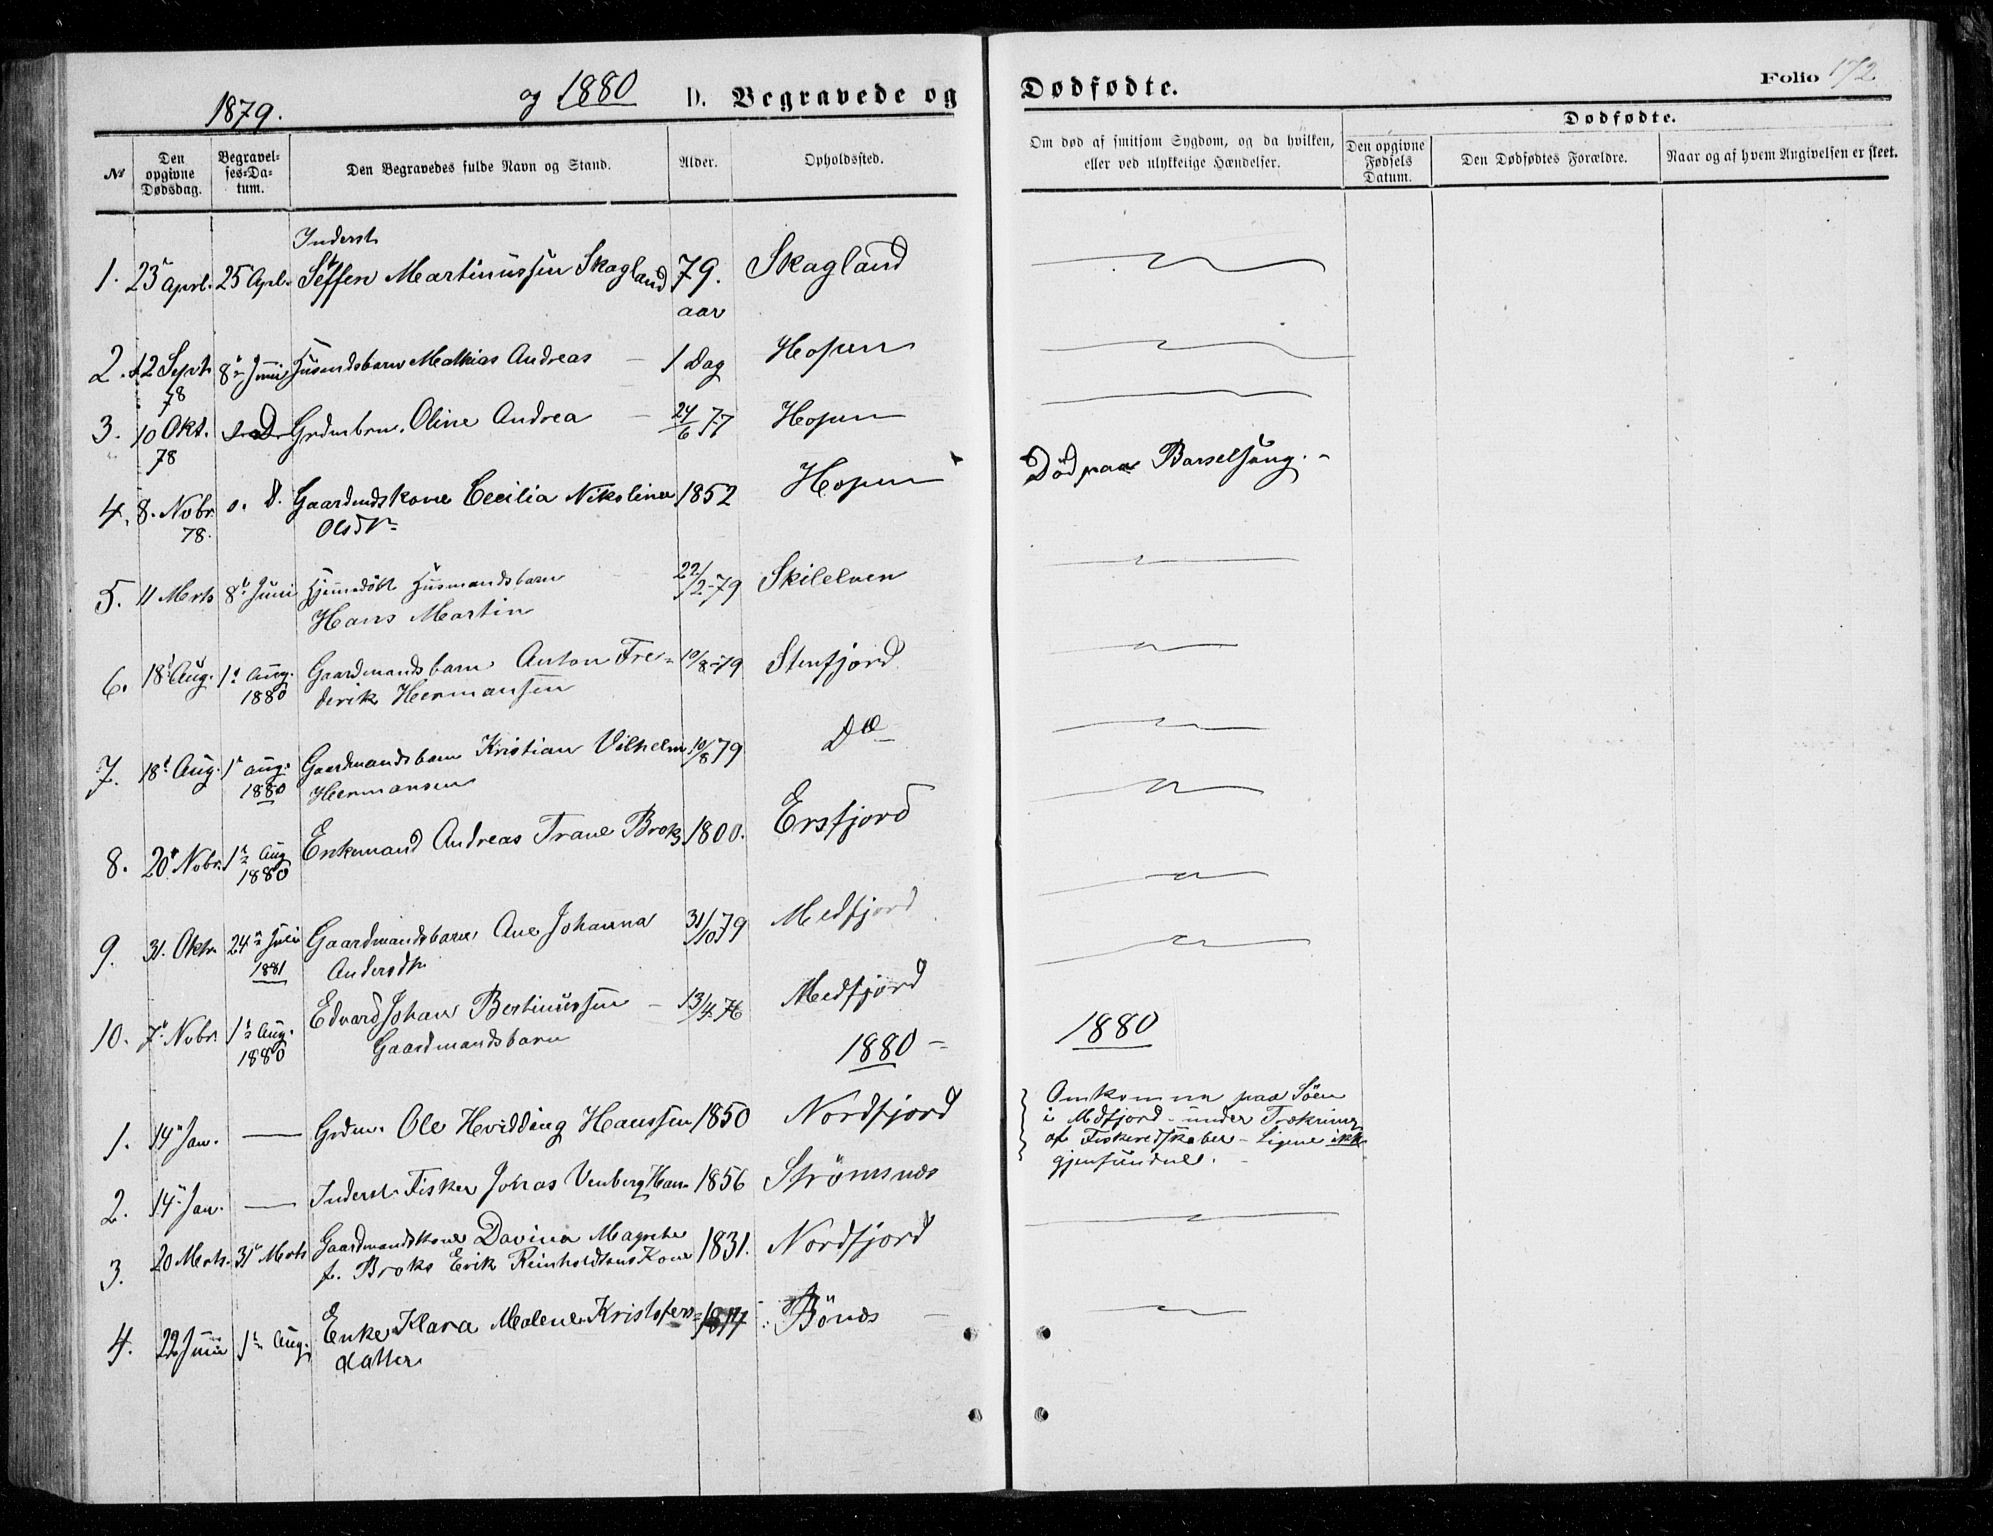 1879. og 1880 D. Begravede og Dødfødte. Folio 172
Dødfødte.
№ Den opgivne Dødsdag. Begravelses-Datum. Den Begravedes fulde Navn og Stand. Alder. Opholdssted. Om død af smitsom Sygdom, og da hvilken, eller ved ulykkelige Hændelser. Den opgivne Fødsels Datum. Den Dødfødtes Forældre. Naar og af hvem Angivelsen er skeet.
Inderst
1. 23 Aprl. 25 Apl. Steffen Martinussen Skagland 79. Skagland
aar
2. 12 Sept. 8 Juni Husmdsbarn Mathias Andreas 1 Dag Hopen
78
3. 10 Okt. s. D. Grdmbrn. Oline Andrea 24/6 77 Hopen
78
4. 8. Nobr. s. D. Gaardmdskone Cecilia Nikoline 1852 Hopen Død paa Barselseng.
78. Olsdtr
5. 11 Merts 8 Juni Hjemmedøbt Husmandsbarn 22/2-79 Skilelven
Hans Martin
6. 18 Aug. 1 Aug. Gaardmandsbarn Anton Fre- 10/8-79 Stenfjord
1880 derik Hermansen
7. 18 Aug. 1 aug. Gaardmandsbarn Kristian Vilhelm 10/8 79 Do
1880 Hermansen
8. 20 Nobr. 1 Aug Enkemand Andreas Trane Broks 1800. Ersfjord
1880
9. 31. Oktr. 24 Juli Gaardmandsbarn Ane Johanna 31/10 79 Medfjord
1881 Andersdtr
10. 7 Nobr. 1 Aug. Edvard Johan Bertinussen 13/4-76 Medfjord
1880 Gaardmandsbarn
1880 1880
1. 14 Jan. — Grdm. Ole Hvidding Hanssen 1850 Nordfjord Omkomne paa Søen
i Mefjord under Trækning
af Fiskeredskaber - Ligene ikke
gjenfundne.
2. 14 Jan. — Inderst Fisker Jonas Venberg Han 1856 Strømsnæs
3. 20 Merts. 31 Merts Gaardmandskone Davina Magrethe 1831. Nordfjord
f. Broks Erik Reinholdtsens Kone
4. 22 Juni 1 Aug. Enke Klara Malene Kristofers- Bønæs
datter